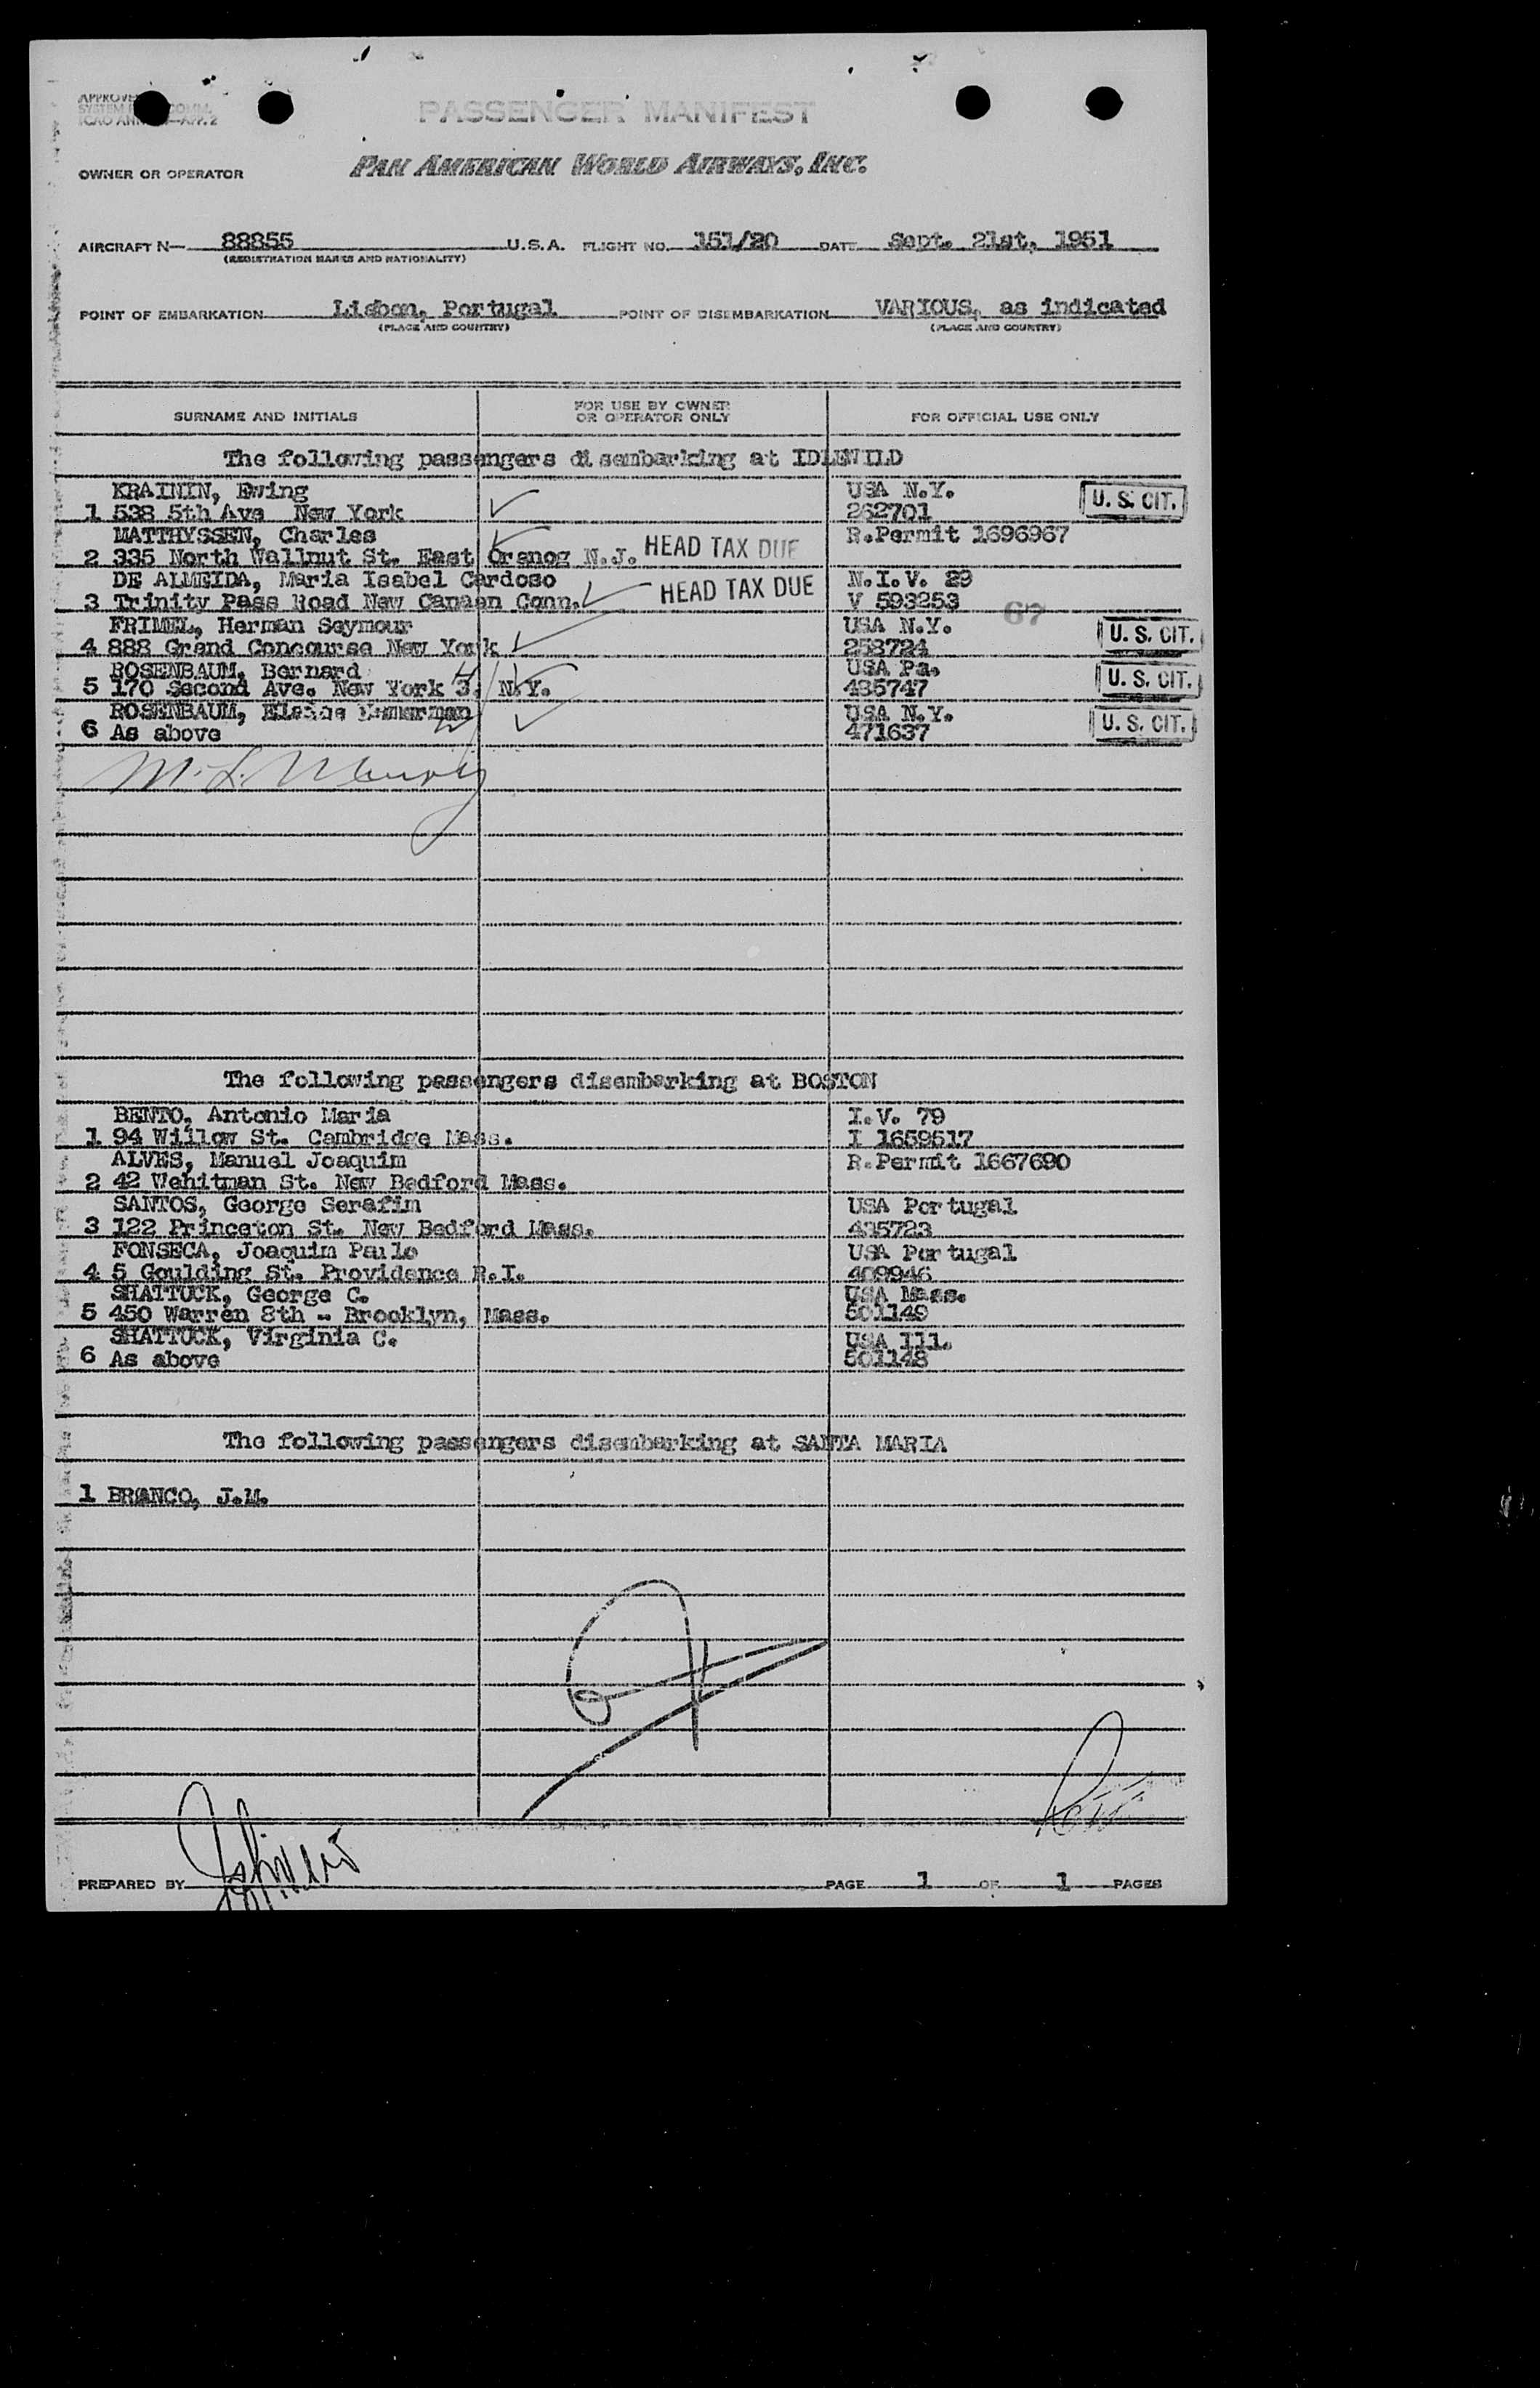 PASSENGER MANIFEST
OWNER OR OPERATOR PAN AMERICAN WORLD AIRWAYS, INC.
AIRCRAFT N— 88855 U.S.A. FLIGHT NO. 151/20 DATE Sept. 21st, 1951
(REGISTRATION MARKS AND NATIONALITY)
POINT OF EMBARKATION Lisbon, Portugal POINT OF DISEMBARKATION VARIOUS, as indicated
(PLACE AND COUNTRY) (PLACE AND COUNTRY)
SURNAME AND INITIALS FOR USE BY OWNER OR OPERATOR ONLY FOR OFFICIAL USE ONLY
The following passengers disembarking at IDLEWILD
KRAININ, Ewing USA N.Y. U. S. CIT.
1 538 5th Ave New York 262701
MATTHYSSEN, Charles HEAD TAX DUE R.Permit 1696967
2 335 North Wallnut St. East Oranog N.J.
DE ALMEIDA, Maria Isabel Cardoso HEAD TAX DUE N.I.V. 29
3 Trinity Pass Road New Canaan Conn. V 593253 67
FRIMEL, Herman Seymour USA N.Y. U. S. CIT.
4 888 Grand Concourse New York 258724
ROSENBAUM, Bernard USA Pa. U. S. CIT.
5 170 Second Ave. New York 3. N.Y. 435747
ROSENBAUM, USA N.Y. U. S. CIT.
6 As above 471637
The following passengers disembarking at BOSTON
BENTO, Antonio Maria I.V. 79
1 94 Willow St. Cambridge Mass. I 1659517
ALVES, Manuel Joaquim R.Permit 1667690
2 42 Wehitman St. New Bedford Mass.
SANTOS, George Serafim USA Portugal
3 122 Princeton St. New Bedford Mass. 435723
FONSECA, Joaquim Paulo USA Portugal
4 5 Goulding St. Providence R.I. 409946
SHATTUCK, George C. USA Mass.
5 450 Warren 8th - Brooklyn, Mass. 501149
SHATTUCK, Virginia C. USA Ill.
6 As above 501148
The following passengers disembarking at SANTA MARIA
1 BRANCO, J.M.
PREPARED BY PAGE 1 OF 1 PAGES